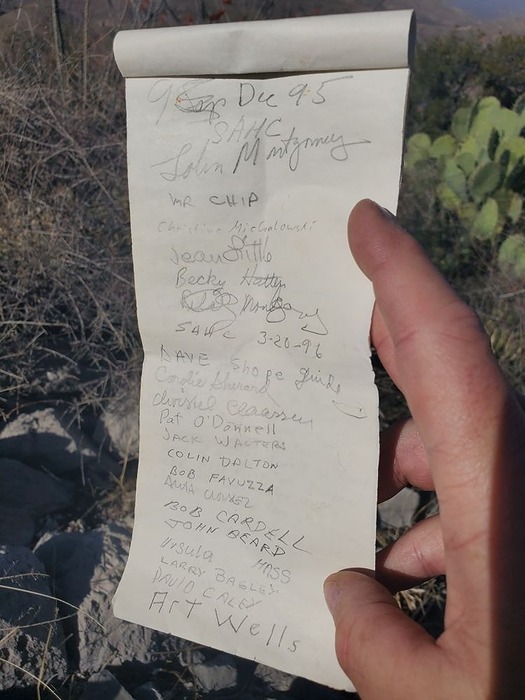 9 Dec 95
SAHC
John Montgomery
MR CHIP
Christine Michalowski
Jean Little
Becky Hatten
SAHC 3-20-96
DAVE Shope guide
Carolie Sherand
Christel Claassen
Pat O'Donnell
JACK WALTERS
COLIN DALTON
BOB FAVUZZA
BOB CARDELL
JOHN BEARD
Ursula HASS
LARRY BAGLEY
DAVID CALEY
Art Wells